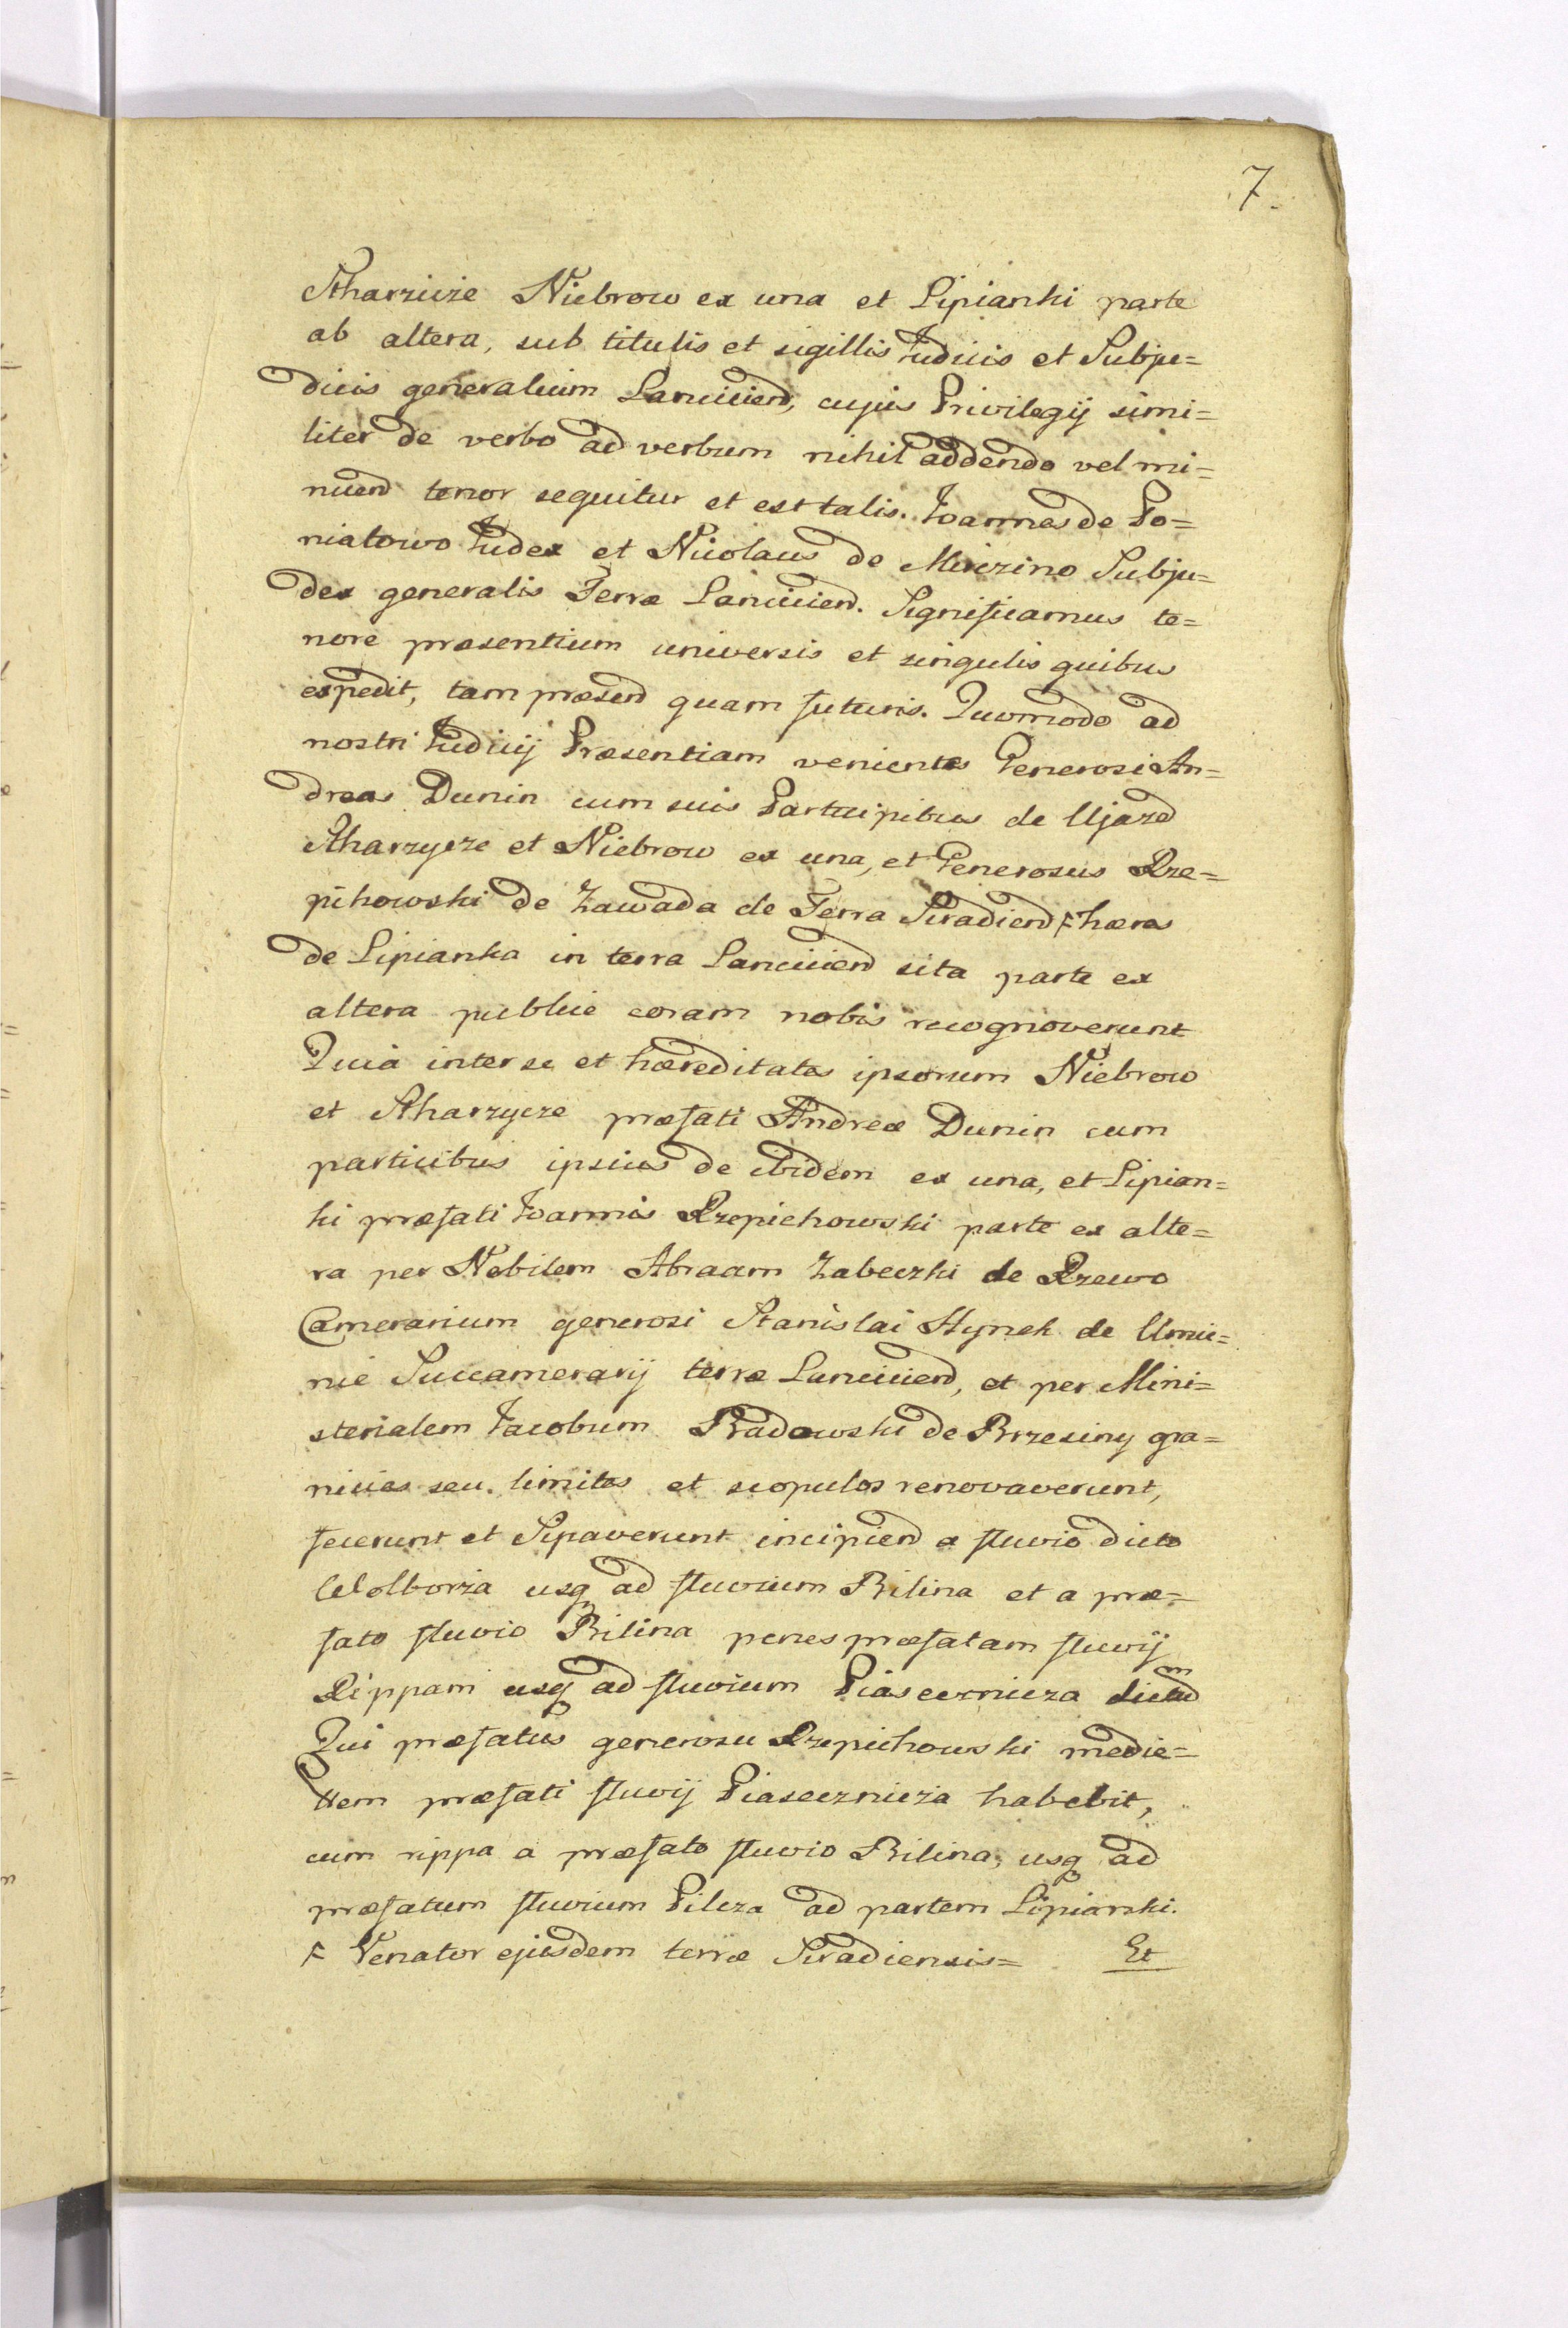 7.
Skarzicze Niebrow ex una et Lipianki parte
ab altera, sub titulis et sigillis Judicis et Subju=
dicis generalium Lanciciend, cujus Privilegij simi=
liter de verbo ad verbum nihil addendo vel mi=
nuend tenor sequitur et est talis. Joannes de Po=
niatowo Judex et Nicolaus de Mirczino Subju=
dex generalis Terræ Lanciciend. Significamus te=
nore præsentium universis et singulis quibus
expedit, tam præsend quam futuris. Quomodo ad
nostri Judicij Præsentiam venientes Generosi An=
dreas Dunin cum suis Participibus de Ujazd
Skarzycze et Niebrow ex una, et Generosus Rze=
pihowski de Zawada de Terra Siradiend F hæres
de Lipianka in terra Lanciciend sita parte ex
altera publice coram nobis recognoverunt
Quia inter se et hæreditates ipsorum Niebrow
et Skarzycze præfati Andreæ Dunin cum
particibus ipsius de ibidem ex una, et Lipian=
ki præfati Joannis Rzepichowski parte ex alte=
ra per Nobilem Abraam Zabeczki de Rzewo
Camerarium generosi Stanislai Hynek de Umie=
nie Succamerarij terræ Lanciciend, et per Mini=
sterialem Jacobum Radowski de Brzesiny gra=
nicies seu limites et scopulos renovaverunt,
fecerunt et Sipaverunt incipiend a fluvio dicto
Wolborza usq ad fluvium Bilina et a præ=
fato fluvio Bilina penes præfatam fluvij
Rippam usq ad fluvium Piasecznicza dictum
Qui præfatus generosu Rzepichowski medie=
ttem præfati fluvij Piasecznicza habebit,
cum rippa a præfato fluvio Bilina, usq ad
præfatum fluvium Pilcza ad partem Lipianki.
F Venator ejusdem terræ Siradiensis= Et